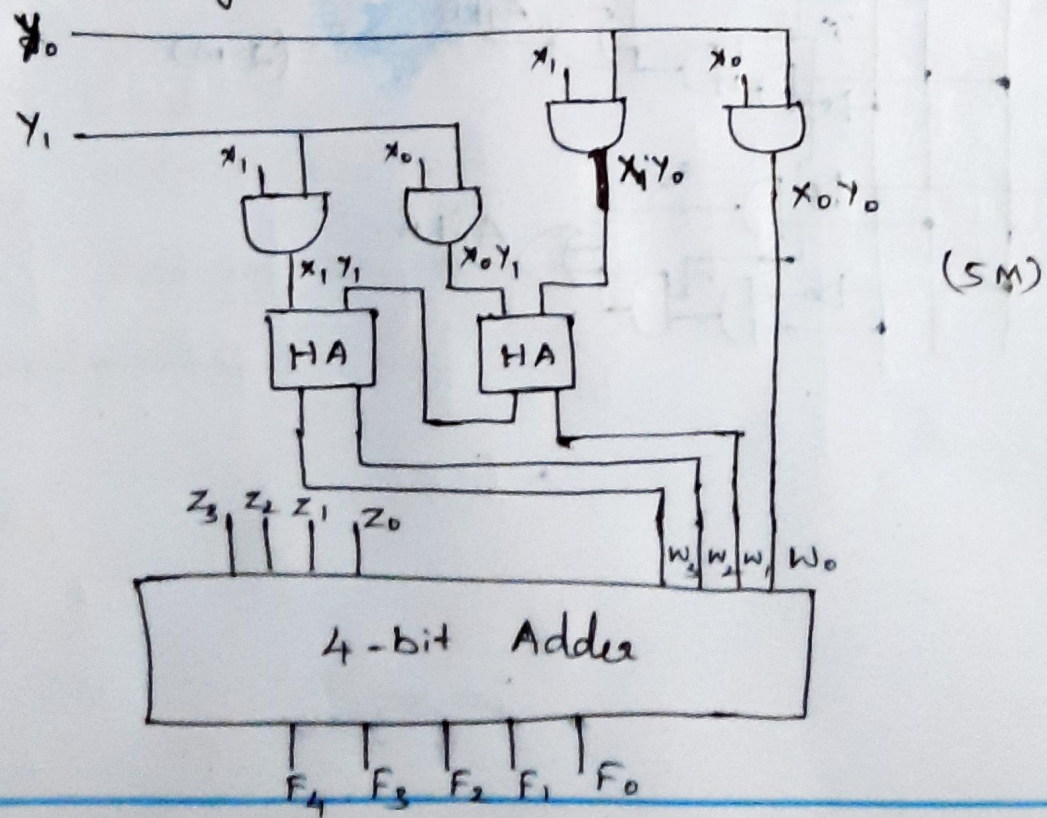 Y₀
X₁ X₀
Y₁
X₁ X₀
X₁Y₀
X₀Y₀
X₁Y₁ X₀Y₁
(5M)
HA HA
Z₃ Z₂ Z₁ Z₀
W₃ W₂ W₁ W₀
4-bit Adder
F₄ F₃ F₂ F₁ F₀